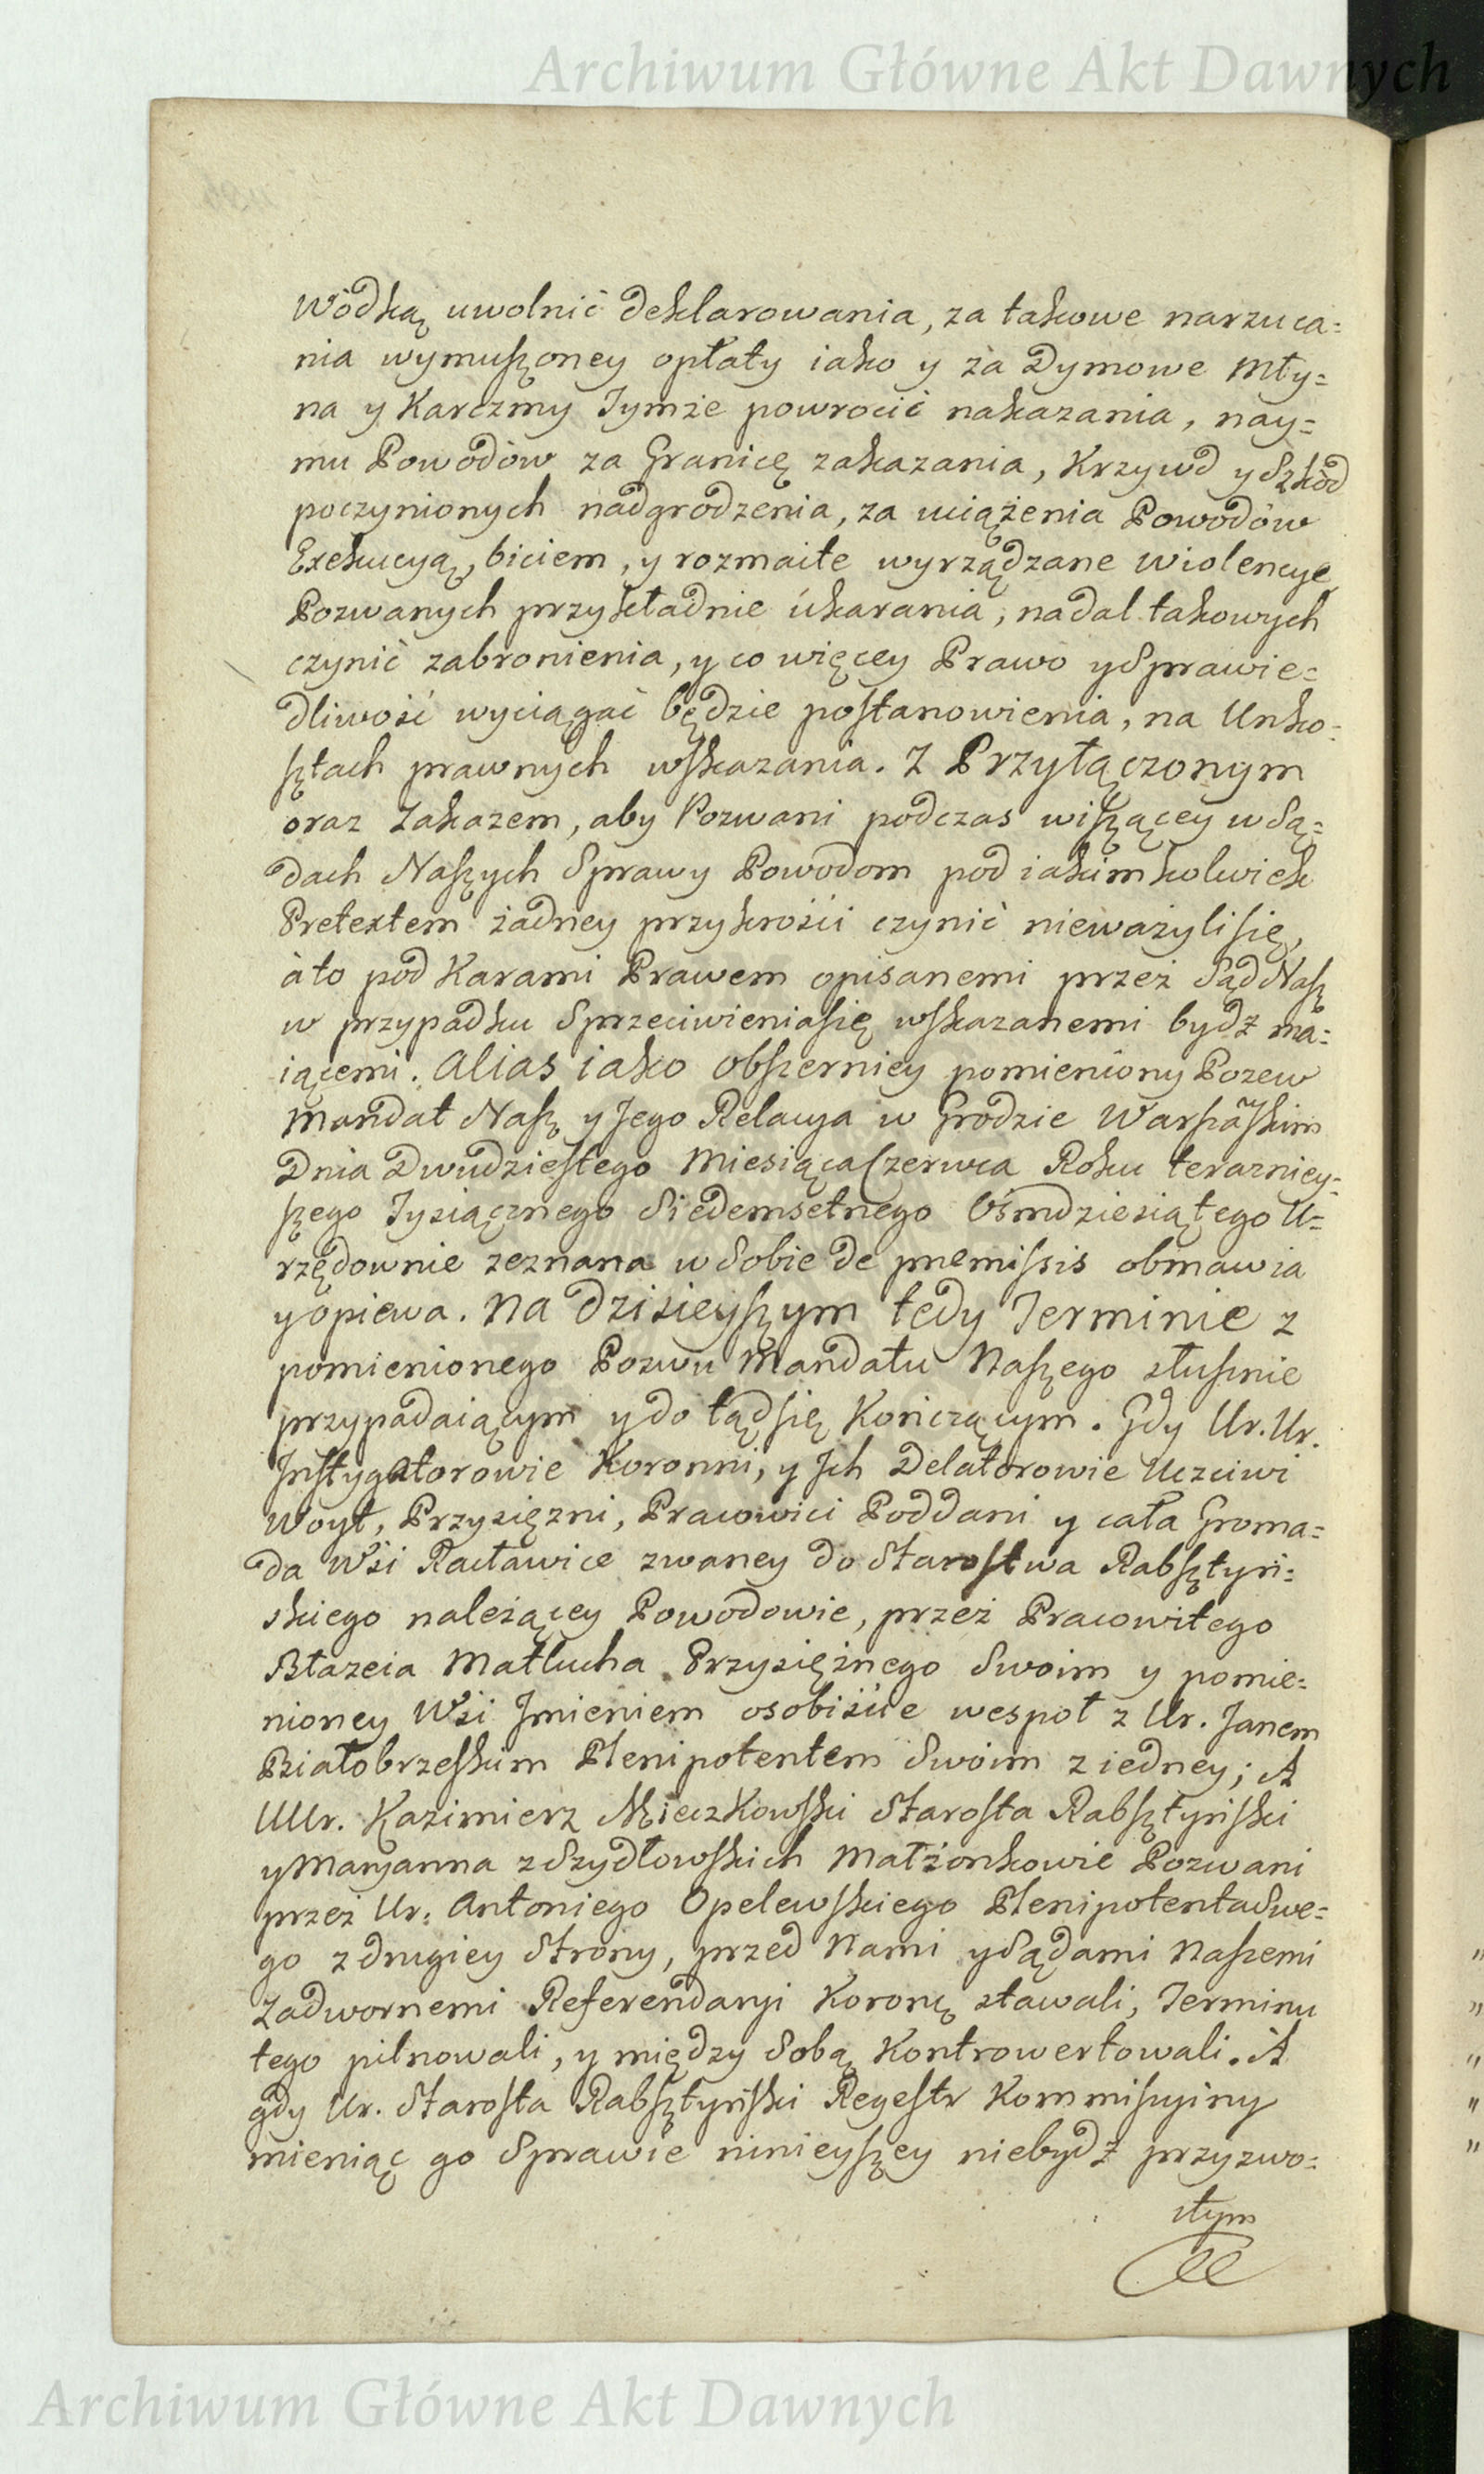 Archiwum Główne Akt Dawnych
Wódką uwolnić deklarowania, za takowe narzuca=
nia wymuszoney opłaty iako y za Dymowe Mły=
na y Karczmy Tymże powrocić nakazania, nay=
mu Powodów za Granicę zakazania, Krzywd y Szkód
poczynionych nadgrodzenia, za uciążenia Powodów
Exekucyą, biciem, y rozmaite wyrządzane wiolencye
Pozwanych przykładnie ukarania, nadal takowych
czynić zabronienia, y co więcey Prawo y Sprawie=
dliwość wyciągać będzie postanowienia, na Unko=
sztach prawnych wskazania. Z Przyłączonym
oraz Zakazem, aby Pozwani podczas wiszącey w Są=
dach Naszych Sprawy Powodom pod iakimkolwiek
Pretextem żadney przykrości czynić nieważyli się,
à to pod Karami Prawem opisanemi przez Sąd Nasz
w przypadku Sprzeciwienia się wskazanemi bydź ma=
iącemi. Alias iako obszerniey pomieniony Pozew
Mandat Nasz y Jego Relacya w Grodzie Warszaskim
Dnia Dwudziestego Miesiąca Czerwca Roku terazniey=
szego Tysiącznego Siedemsetnego Ośmdziesiątego U=
rzędownie zeznana w Sobie de premissis obmawia
y opiewa. Na dzisieyszym tedy Terminie z
pomienionego Pozwu Mandatu Naszego słusznie
przypadaiącym y do tąd się Kończącym. Gdy Ur. Ur.
Instygatorowie Koronni, y Ich Delatorowie Uczciwi
Woyt, Przysięzni, Pracowici Poddani y cała Groma=
da Wsi Racławice zwaney do Starostwa Rabsztyń=
skiego należącey Powodowie, przez Pracowitego
Błazeia Matłucha Przysiężnego Swoim y pomie=
nioney Wsi Imieniem osobiście wespoł z Ur. Janem
Białobrzeskim Plenipotentem Swoim z iedney; A
UUr. Kazimierz Mieczkowski Starosta Rabsztyński
y Maryanna z Szydłowskich Małżonkowie Pozwani
przez Ur: Antoniego Opelewskiego Plenipotenta Swe=
go z drugiey Strony, przed Nami y Sądami Naszemi
Zadwornemi Referendaryi Koronę stawali, Terminu
tego pilnowali, y między Sobą Kontrowertowali. A
gdy Ur. Starosta Rabsztyński Regestr Kommisyiny
mieniąc go Sprawie ninieyszey niebydź przyzwo=
itym
Archiwum Główne Akt Dawnych